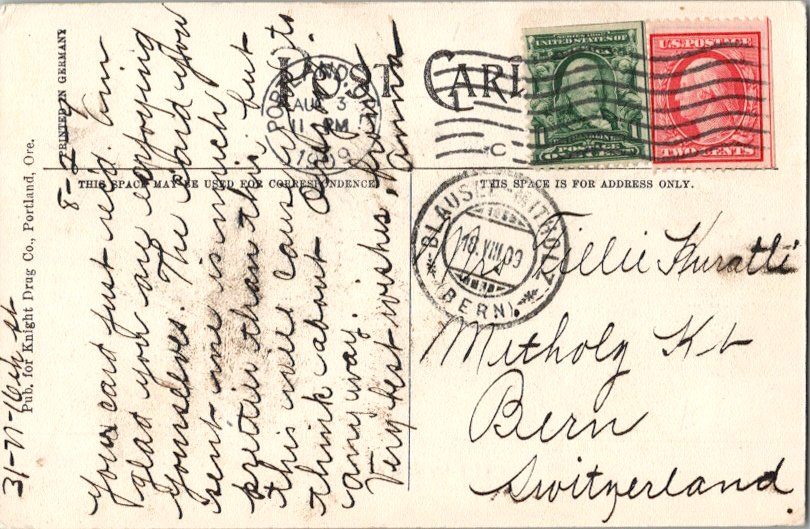 PRINTED IN GERMANY
POST CARD
Pub. for Knight Drug Co., Portland, Ore.
THIS SPACE MAY BE USED FOR CORRESPONDENCE
THIS SPACE IS FOR ADDRESS ONLY.
31-77-16th st
8-2-9
your card just rec'd. Am
glad you are enjoying
yourselves. The card you
sent me is much
prettier than this but
this will cause you to
think about Ores
any way.
Very best wishes from
Anna
PORTLAND
AUG 3
11 PM
1909
SERIES 1902
UNITED STATES OF AMERICA
POSTAGE
U.S. POSTAGE
TWO CENTS
C
BLAUSEE-MITHOLZ
18 VIII 09
(BERN)
Mrs Lillie Kuratli
Mitholz Kt
Bern
Switzerland.